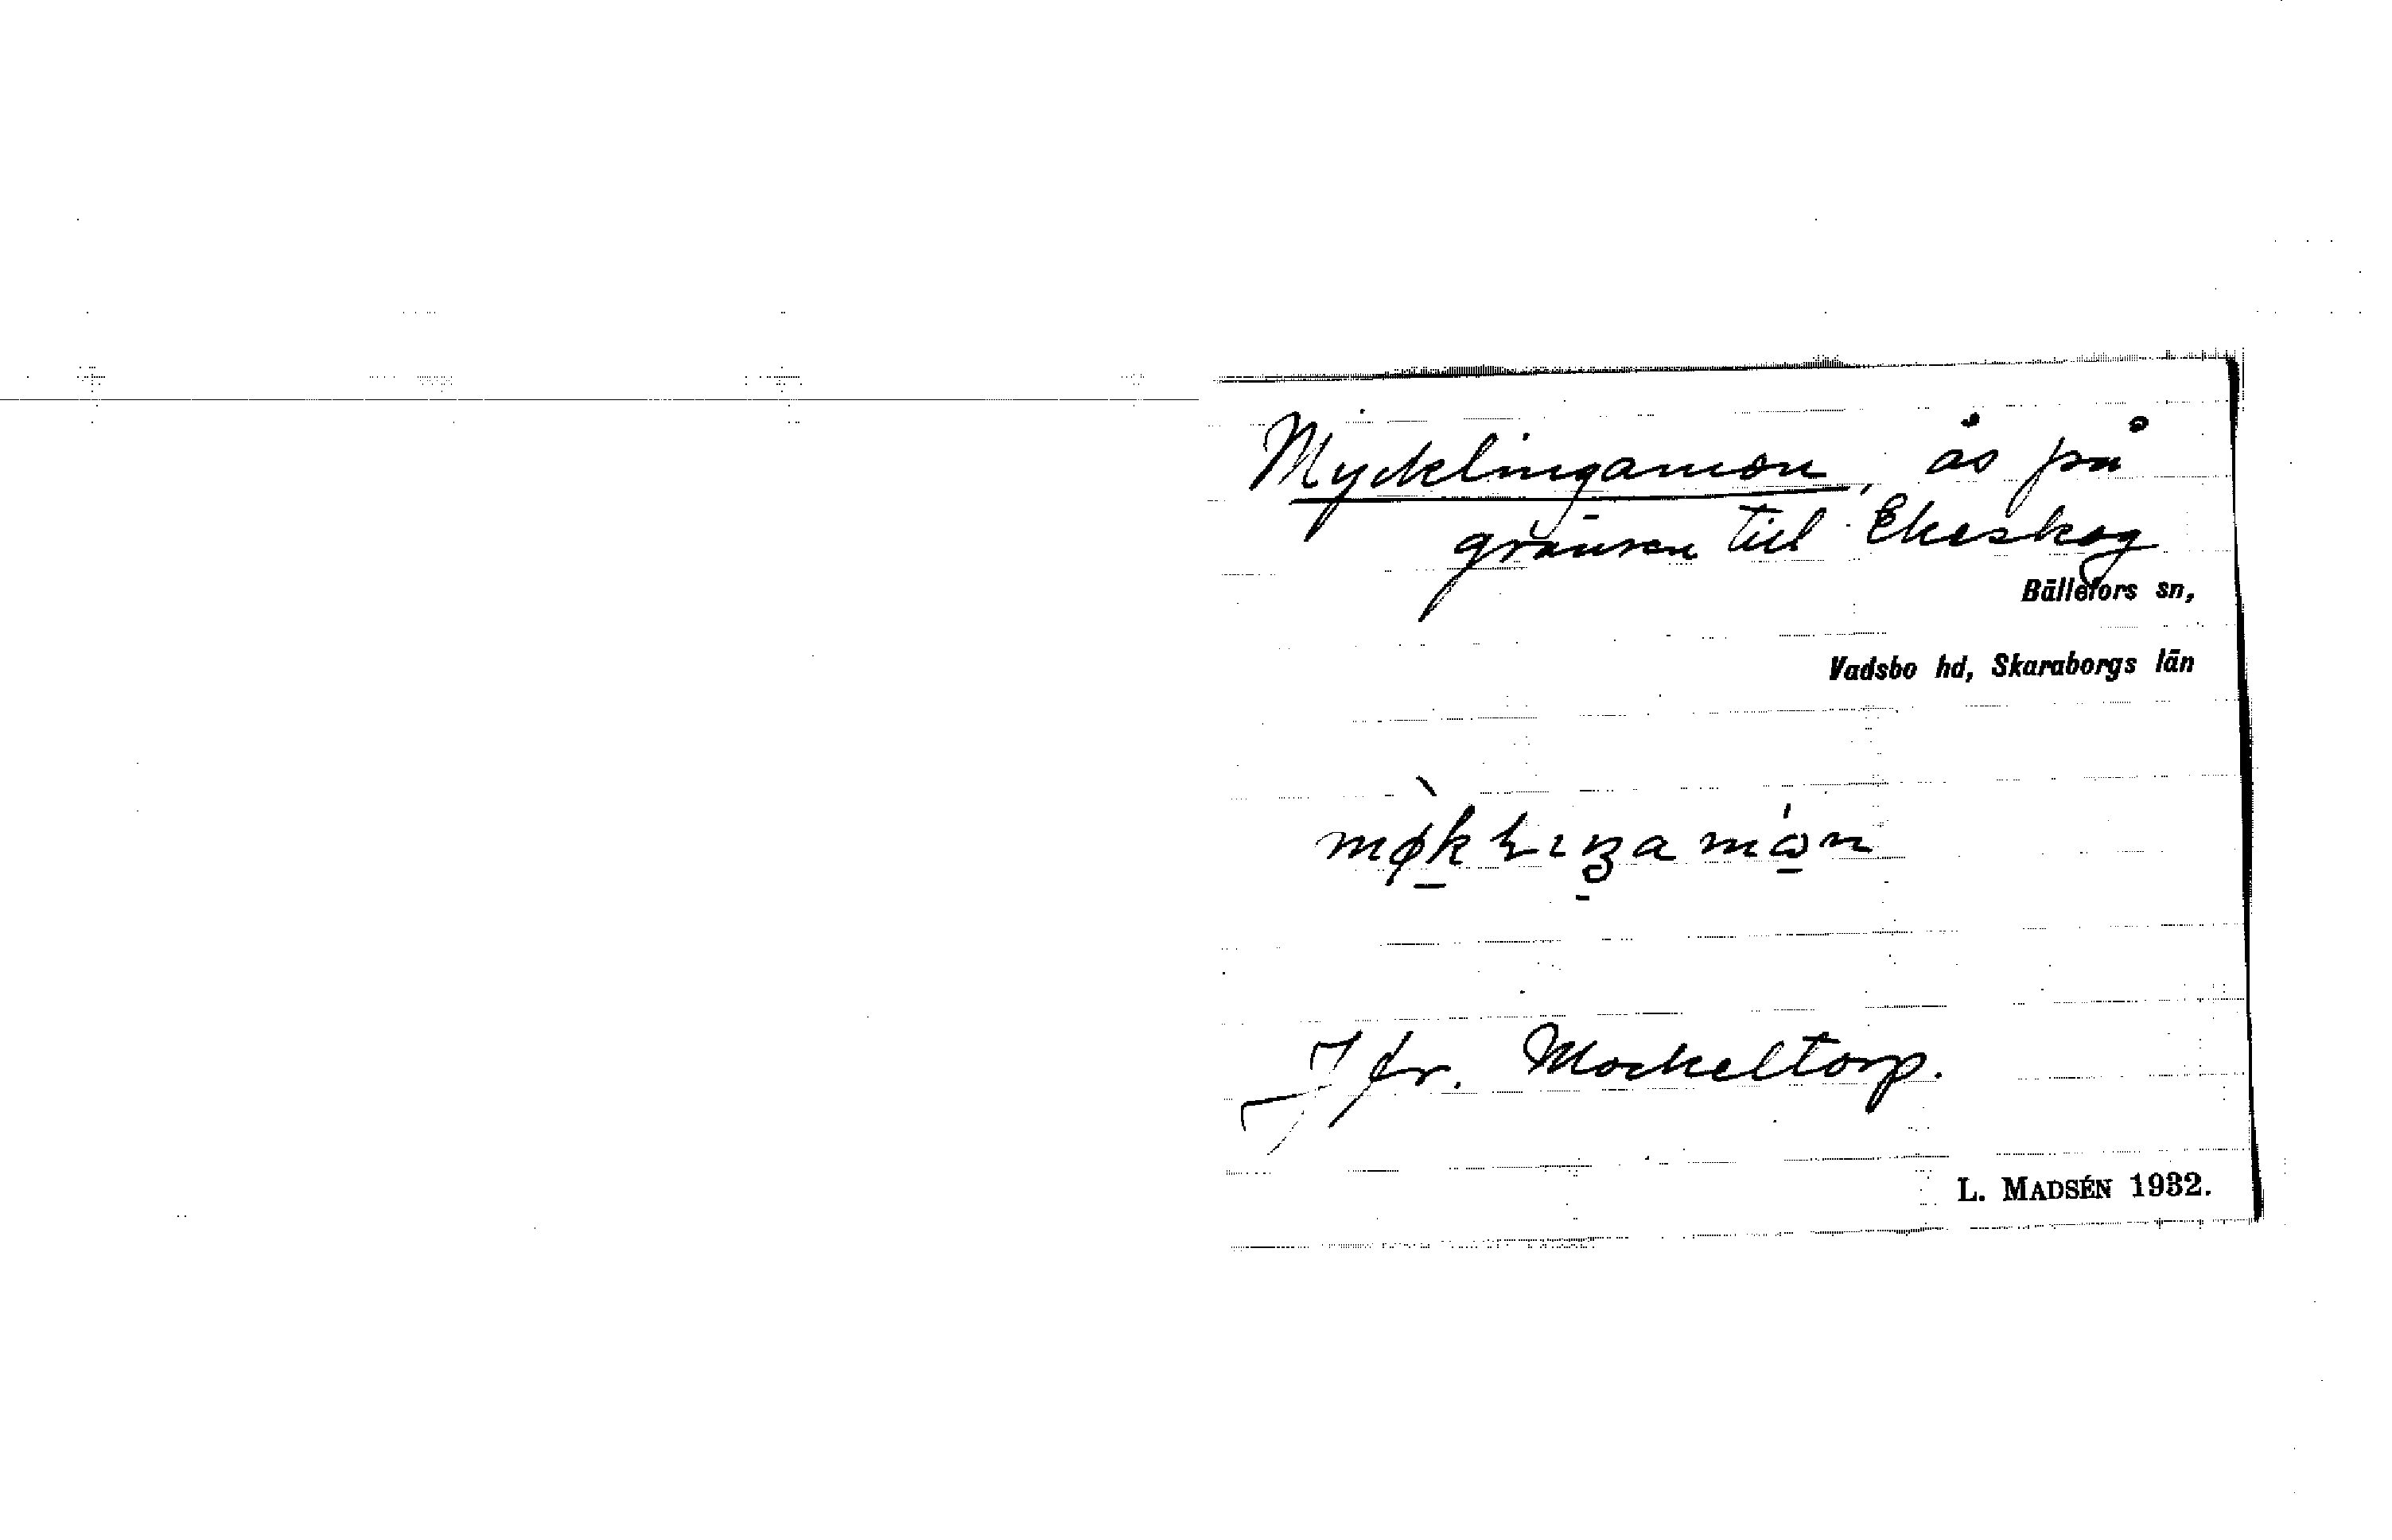 Mycklingamon, ås på
gränsen till Ekeskog
Bällefors sn,
Vadsbo hd, Skaraborgs län
Jfr. Mockeltorp.
L. MADSÉN 1932.